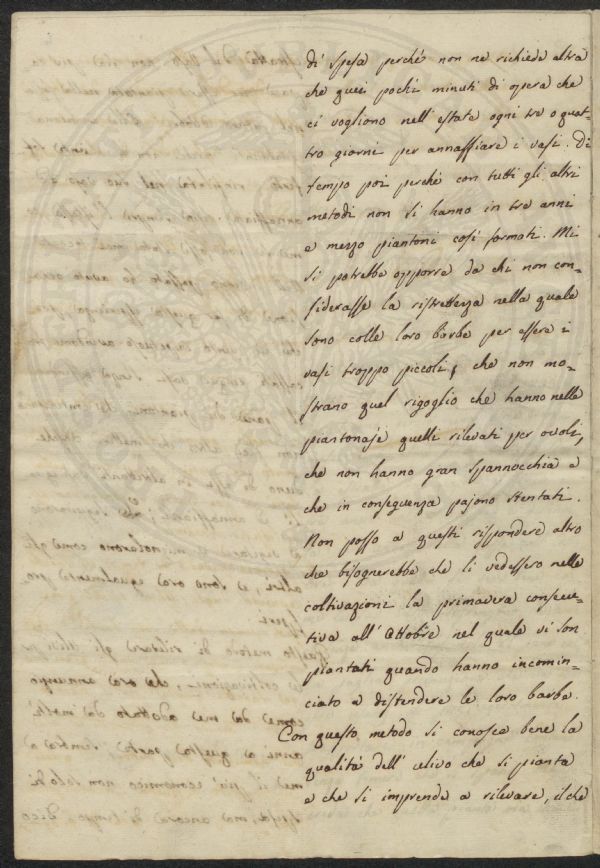 di spesa perchè non ne richiede altra
che quei pochi minuti di opera che
ci vogliono nell'estate ogni tre o quat=
tro giorni per annaffiare i vasi. Di
tempo poi perchè con tutti gli altri
metodi non si hanno in tre anni
e mezzo piantoni così formati. Mi
si potrebbe opporre da chi non con=
siderasse la ristrettezza nella quale
sono colle loro barbe per essere i
vasi troppo piccoli, che non mo=
strano quel rigoglio che hanno nelle
piantonaje quelli rilevati per ovoli,
che non hanno gran spannocchia e
che in conseguenza pajono stentati.
Non posso a questi rispondere altro
che bisognerebbe che li vedessero nelle
coltivazioni la primavera consecu=
tiva all'Ottobre nel quale vi son
piantati quando hanno incomin=
ciato a distendere le loro barbe.
Con questo metodo si conosce bene la
qualità dell'ulivo che si pianta
e che si imprende a rilevare, il che